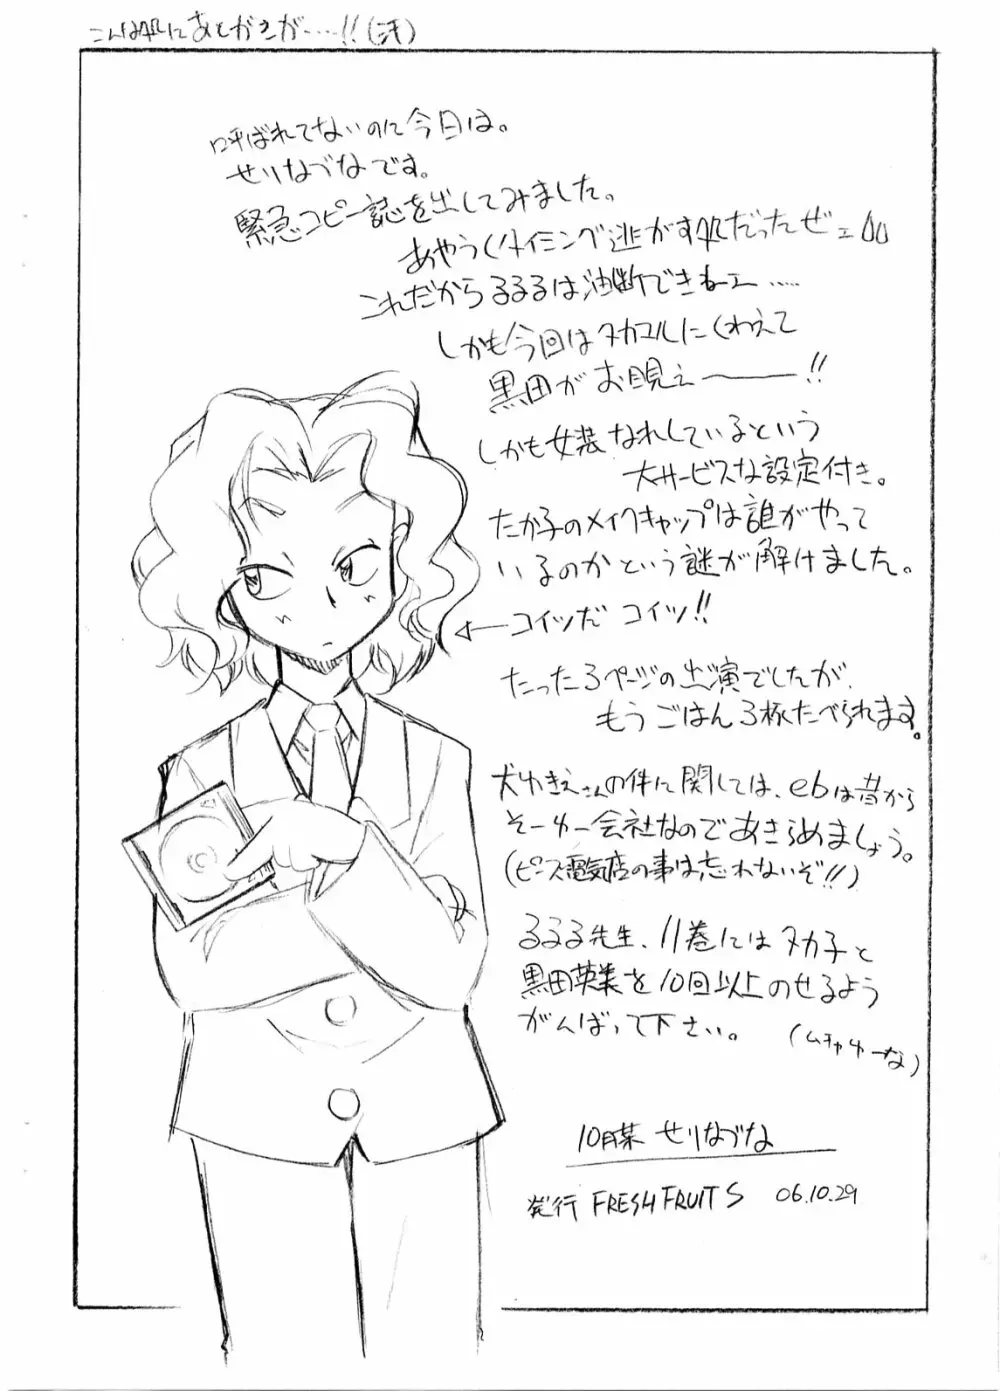 こんな処にあとがきが……!!(汗)
呼ばれてないのに今日は。
せりなづなです。
緊急コピー誌を出してみました。
あやうくタイミング逃がす処だったぜェ
これだからるるるは油断できねーェ……
しかも今回はヌカコルにくわえて
黒田がお目見え―――!!
しかも女装なれしているという
大サービスな設定付き。
たか子のメイクキャップは誰がやって
いるのかという謎が解けました。
←コイツだ コイツ!!
たった3ページの出演でしたが、
もうごはん3杯たべられます。
犬ゆきえさんの件に関しては、ebは昔から
そーゆー会社なのであきらめましょう。
(ピース電気店の事は忘れないぞ!!)
るるる先生、11巻にはヌカ子と
黒田英業を10回以上のせるよう
がんばって下さい。
(ムチャゆーな)
10月某 せりなづな
発行 FRESH FRUITS 06.10.29